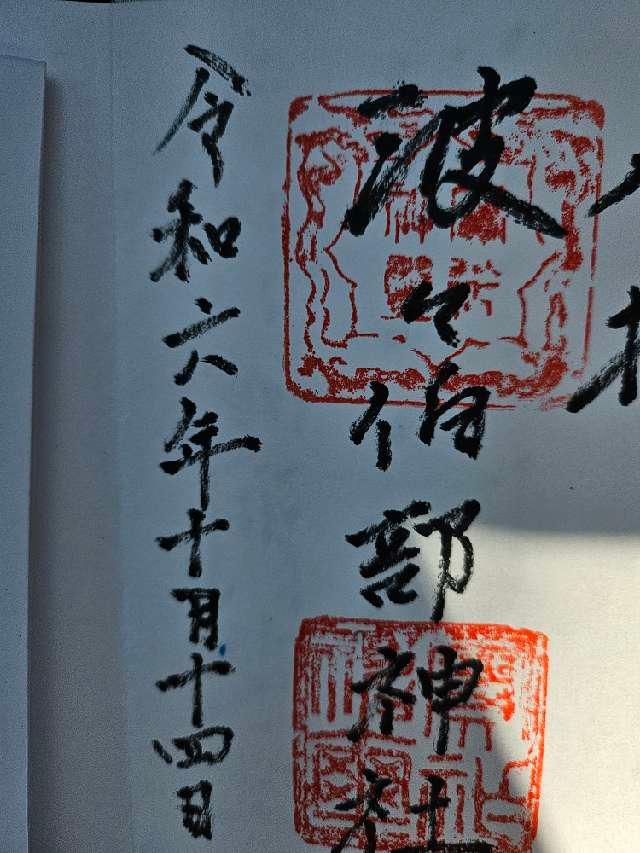 波々伯部神社
令和六年十月十四日